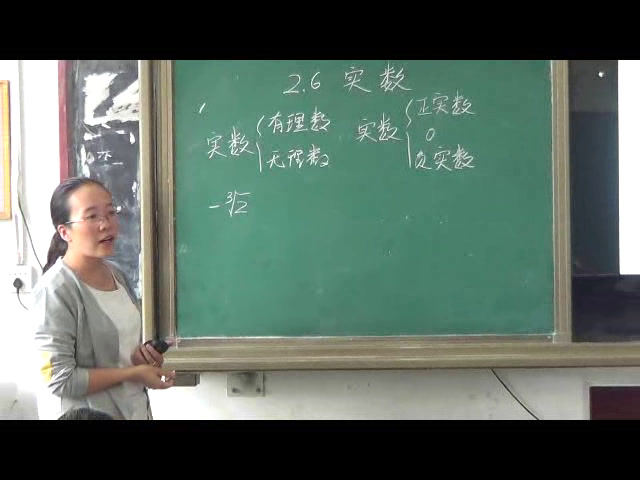 2.6 实数
实数 { 有理数
无理数
实数 { 正实数
0
负实数
-∛2